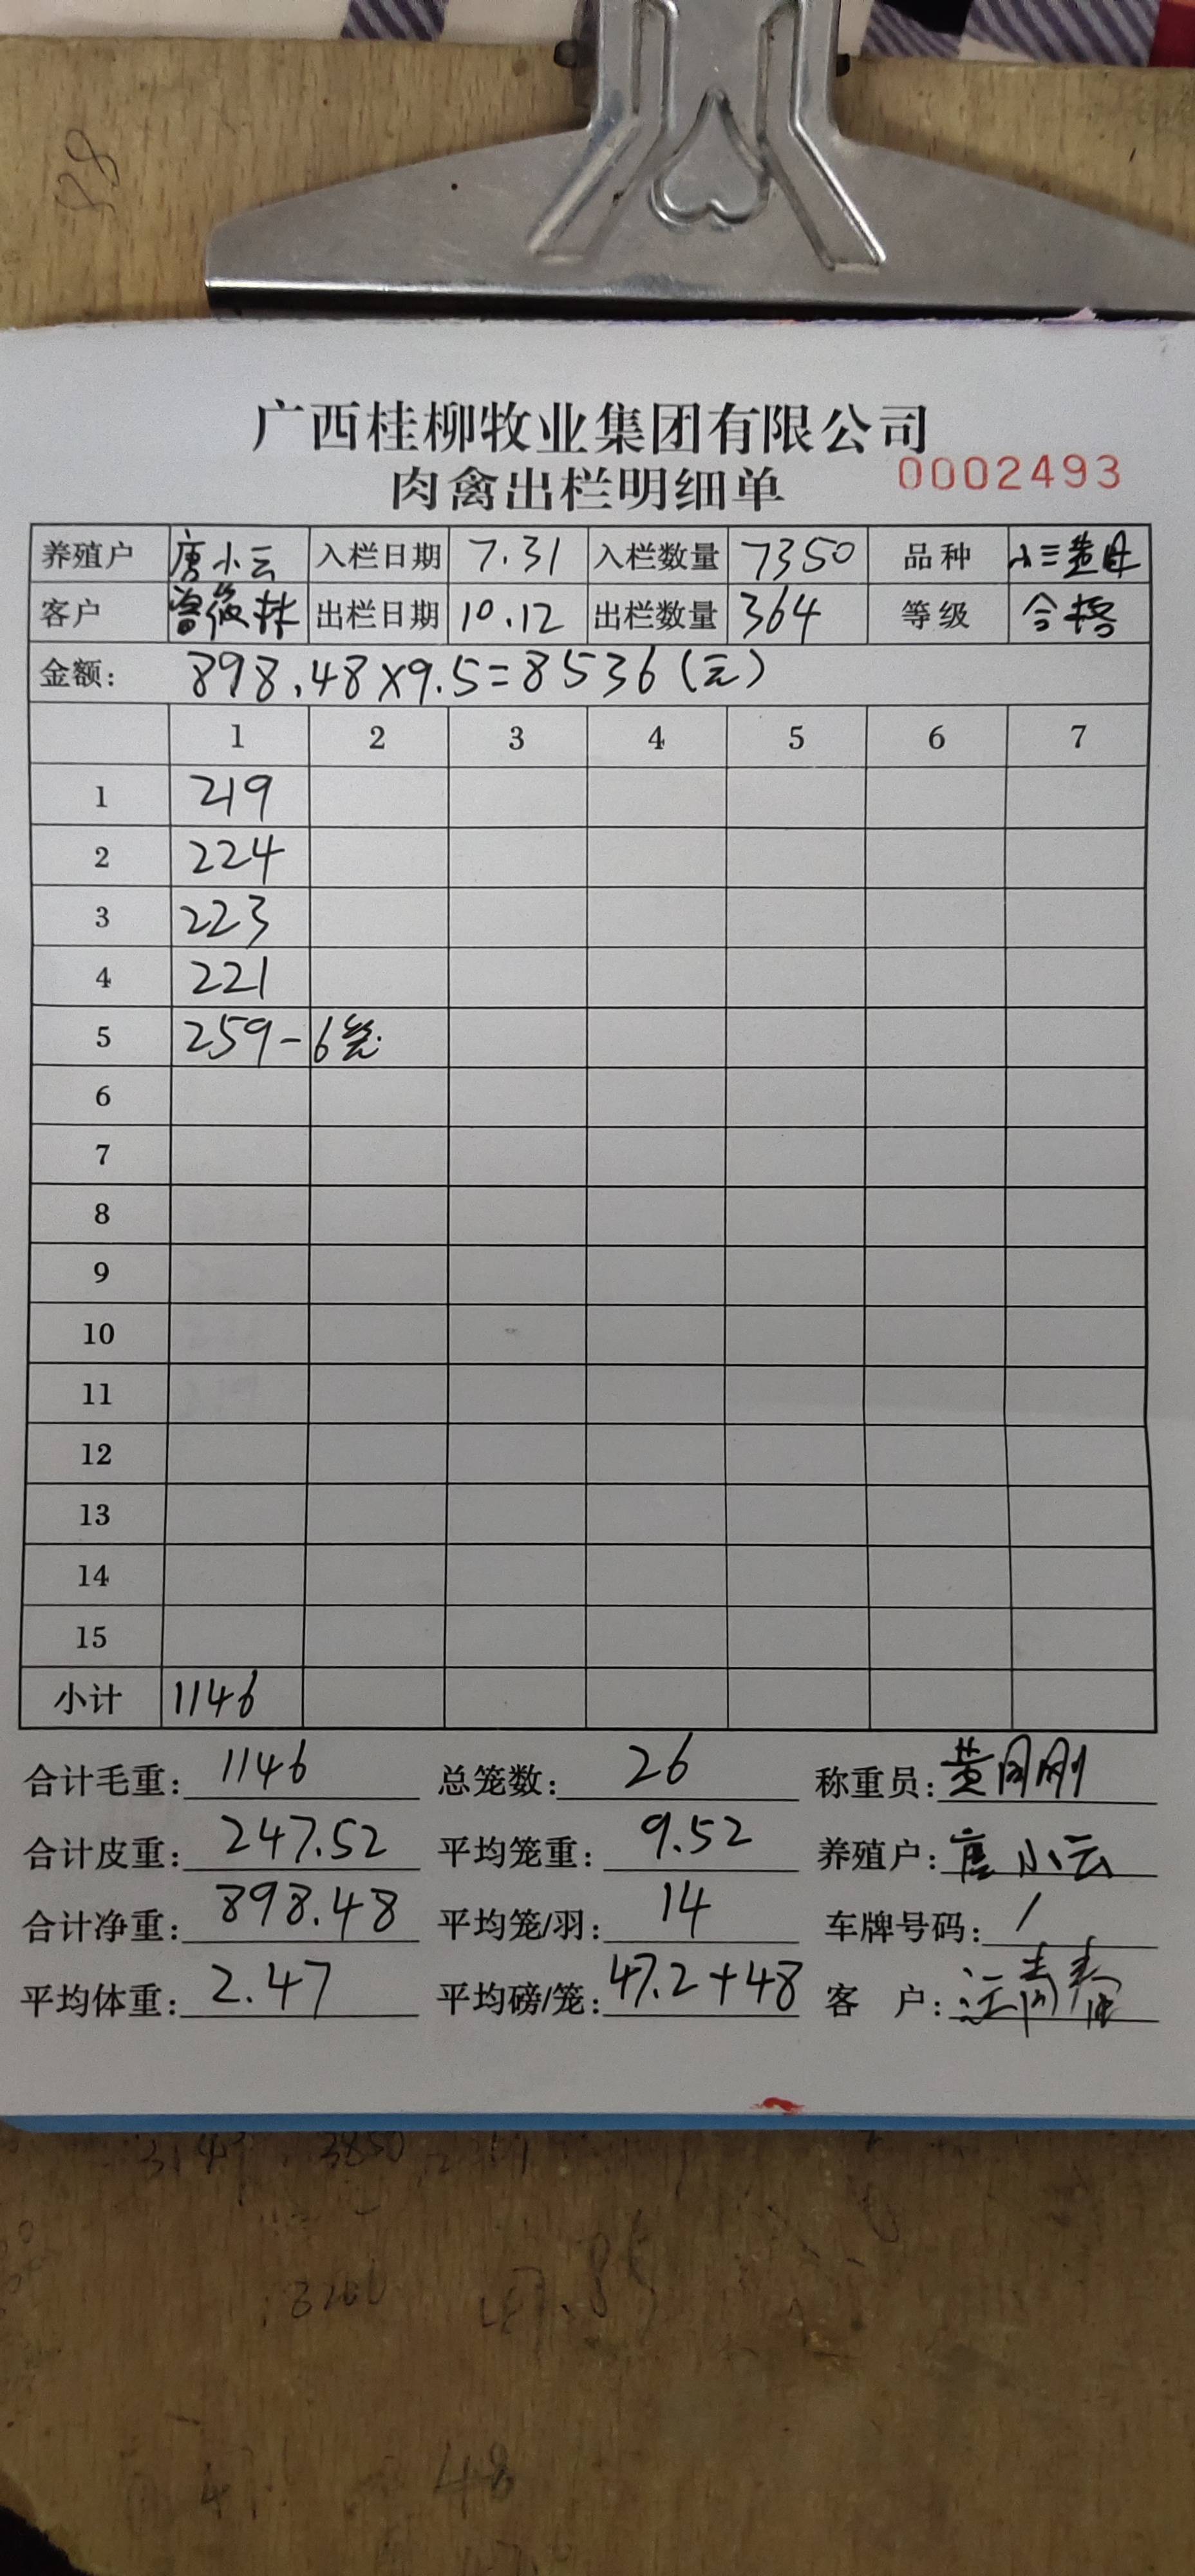 28
广西桂柳牧业集团有限公司
肉禽出栏明细单 0002493
养殖户 唐小云 入栏日期 7.31 入栏数量 7350 品种 小三黄母
客户 曾俊林 出栏日期 10.12 出栏数量 364 等级 合格
金额: 898.48×9.5=8536(元)
1 2 3 4 5 6 7
1 219
2 224
3 223
4 221
5 259-6笼
6
7
8
9
10
11
12
13
14
15
小计 1146
合计毛重: 1146 总笼数: 26 称重员: 黄月刚
合计皮重: 247.52 平均笼重: 9.52 养殖户: 唐小云
合计净重: 898.48 平均笼/羽: 14 车牌号码: /
平均体重: 2.47 平均磅/笼: 47.2+48 客 户:
3850
48